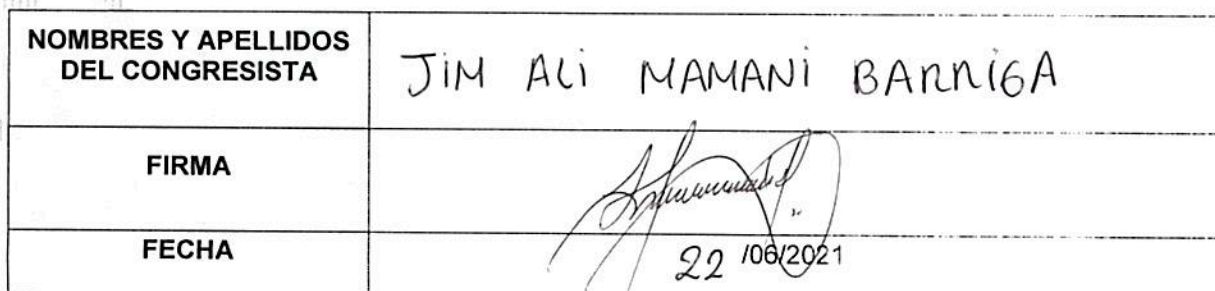 NOMBRES Y APELLIDOS
DEL CONGRESISTA
JiM ALi MAMANi BARRiGA
FIRMA
FECHA
22 /06/2021